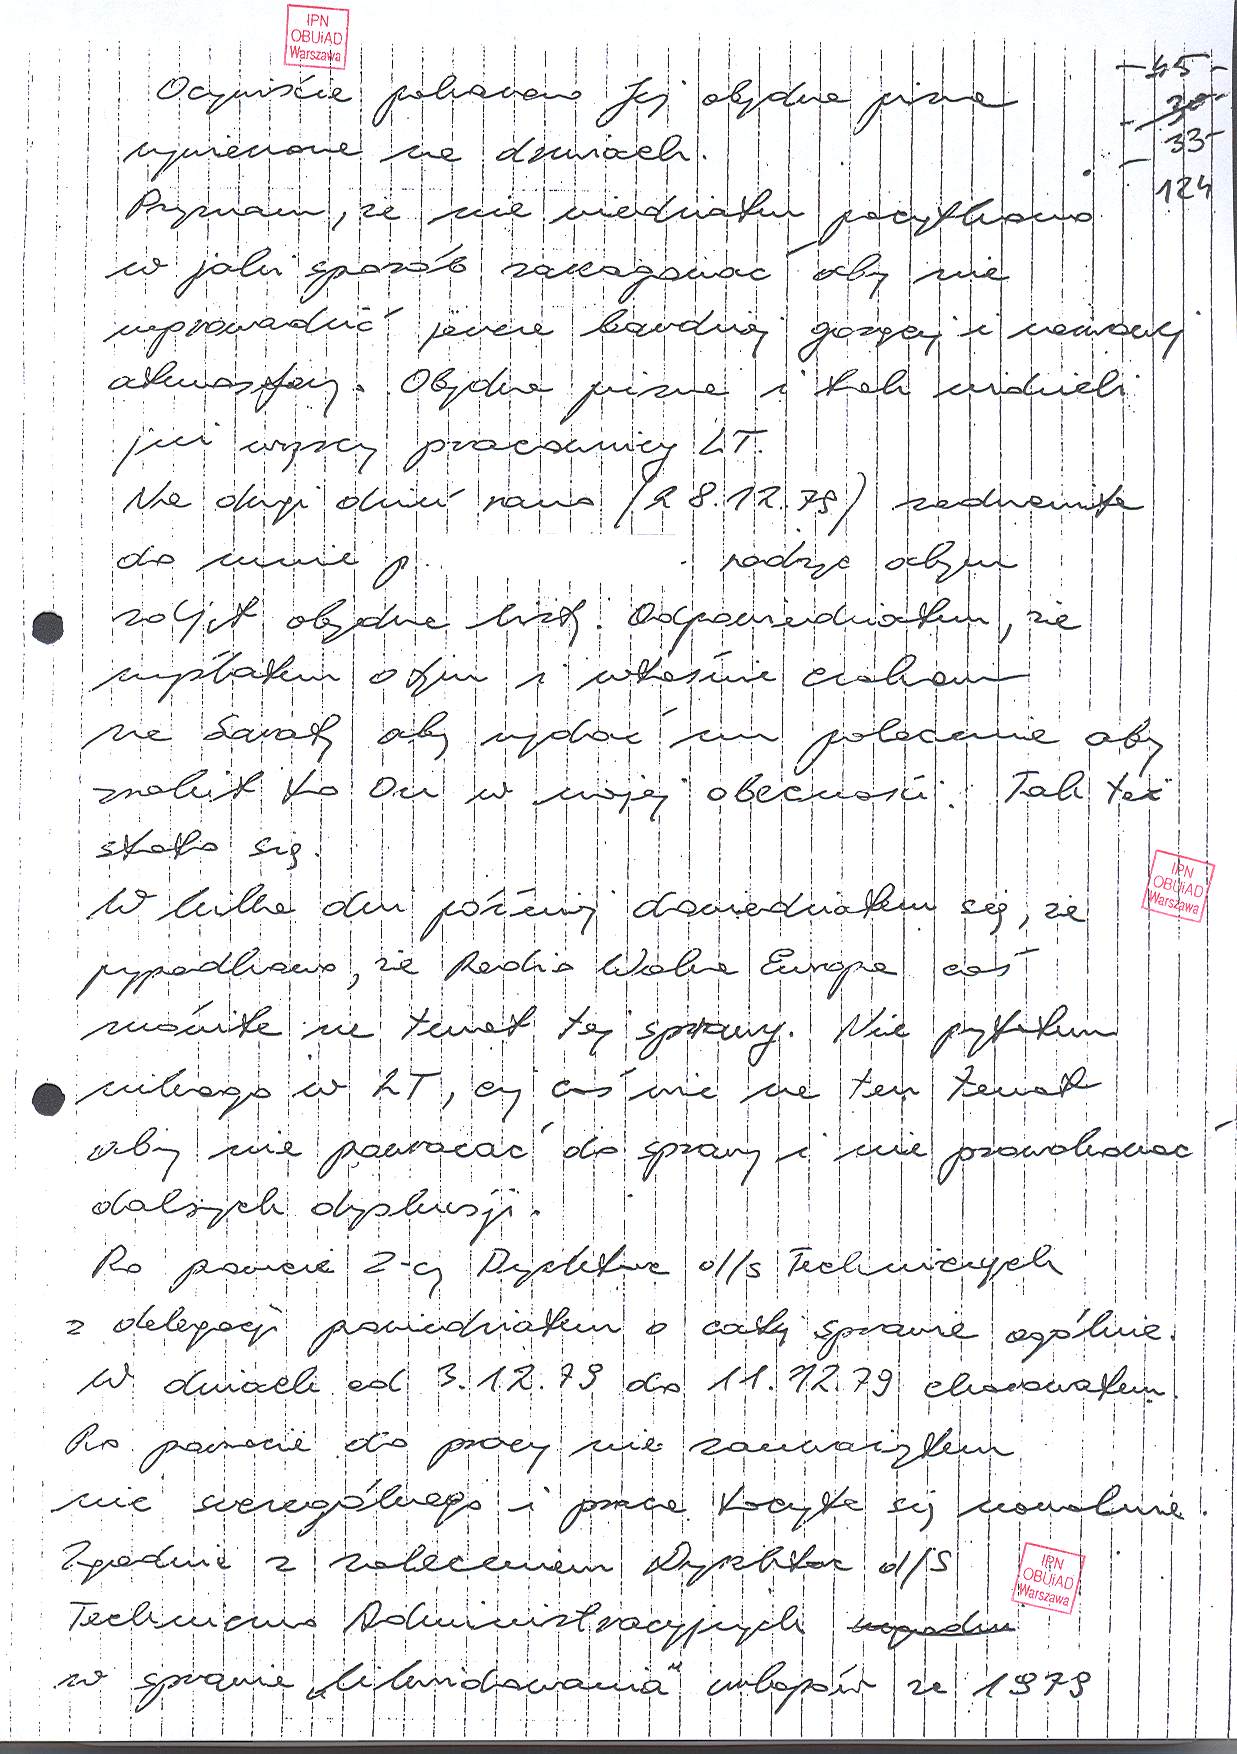 IPN
OBUiAD
Warszawa
45
30
33
124
Oczywiście pokazano Jej obydwa pisma
wymienione na drzwiach.
Przyznam, że nie wiedziałem początkowo
w jaki sposób zareagować aby nie
wprowadzić jeszcze bardziej gorącej i nerwowej
atmosfery. Obydwa pisma i tak widzieli
już wszyscy pracownicy LT.
Na drugi dzień rano (28.12.79) zadzwoniła
do mnie p. radząc abym
zdjął obydwa listy. Odpowiedziałem, że
myślałem o tym i właśnie czekam
na aby wydać mu polecenie aby
zrobił to On w mojej obecności. Tak też
stało się.
W kilka dni później dowiedziałem się, że
przypadkowo, że Radio Wolna Europa coś
mówiła na temat tej sprawy. Nie pytałem
nikogo w LT, czy coś wie na ten temat
aby nie powracać do sprawy i nie prowokować
dalszych dyskusji.
Po powrocie Z-cy Dyrektora d/s Technicznych
z delegacji powiedziałem o całej sprawie ogólnie.
W dniach od 3.12.79 do 11.12.79 chorowałem.
Po powrocie do pracy nie zauważyłem
nic szczególnego i praca toczyła się normalnie.
Zgodnie z zaleceniem Dyrektora d/s
Techniczno Administracyjnych
w sprawie "likwidowania" urlopów za 1979
IPN
OBUiAD
Warszawa
IPN
OBUiAD
Warszawa